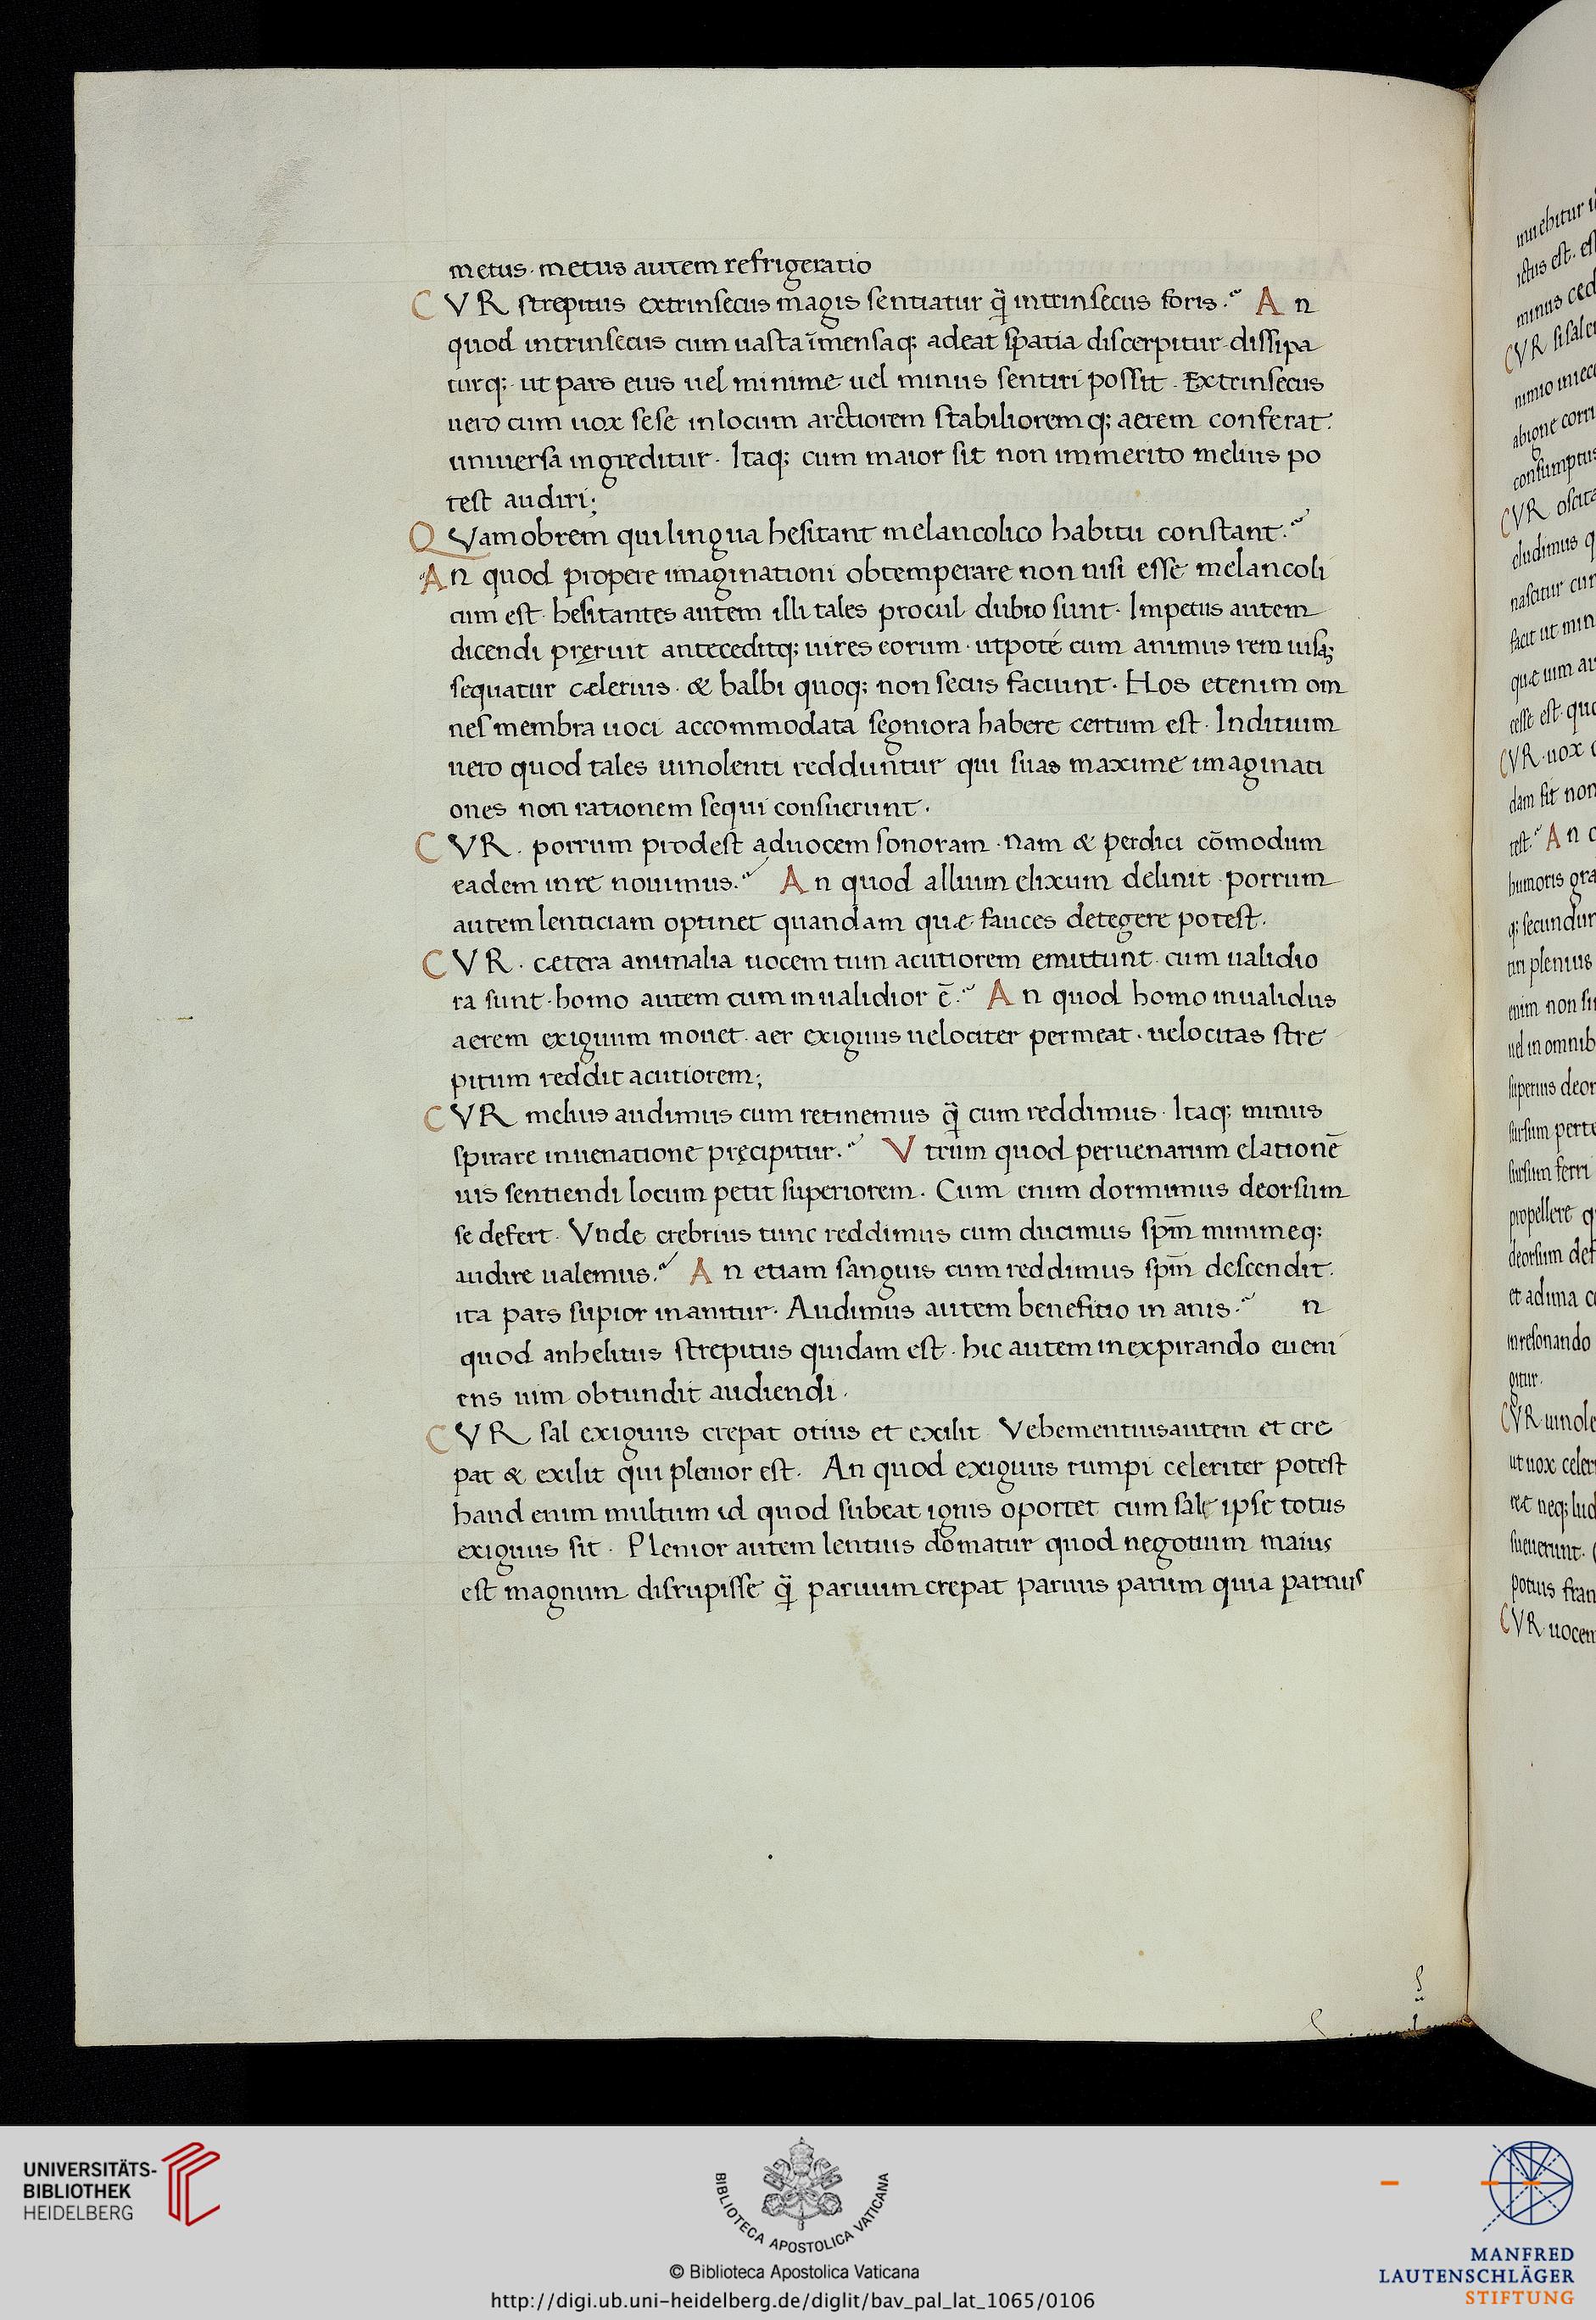 metus· metus autem refrigeratio
CVR strepitus extrinsecus magis sentiatur q̃ intrinsecus foris. An
quod intrinsecus cum uasta īmensaq; adeat spatia discerpitur· dissipa
turq;· ut pars eius uel minime uel minus sentiri possit· Extrinsecus
uero cum uox sese in locum arctiorem stabilioremq; aerem conferat·
uniuersa ingreditur· Itaq; cum maior sit non immerito melius po
test audiri;
QVamobrem qui lingua hesitant melancolico habitu constant·
An quod propere imaginationi obtemperare non nisi esse melancoli
cum est· hesitantes autem illi tales procul dubio sunt· Impetus autem
dicendi pręruit anteceditq; uires eorum· utpote cum animus rem uisaꝫ
sequatur celerius· & balbi quoq; non secus faciunt· Hos etenim om
nes membra uoci accommodata segniora habere certum est· Indituum
uero quod tales uinolenti redduntur qui suas maxime imaginati
ones non rationem sequi consuerunt·
CVR· porrum prodest ad uocem sonoram· nam & perdici cōmodum
eadem in re nouimus. An quod allium elixum delinit· porrum
autem lenticiam optinet quandam quæ fauces detegere potest.
CVR· cetera animalia uocem tum acutiorem emittunt· cum ualidio
ra sunt· homo autem cum inualidior ē. An quod homo inualidus
aerem exiguum mouet· aer exiguus uelociter permeat· uelocitas stre
pitum reddit acutiorem;
CVR melius audimus cum retinemus q̃ cum reddimus· Itaq; minus
spirare in uenatione pręcipitur. Vtrum quod per uenarum elationē
uis sentiendi locum petit superiorem. Cum enim dormimus deorsum
se defert· Vnde crebrius tunc reddimus cum ducimus spm̄ minimeq;
audire ualemus. An etiam sanguis cum reddimus spm̄ descendit·
ita pars supior inanitur· Audimus autem benefitio inanis. n
quod anhelitus strepitus quidam est· hic autem in expirando eueni
ens uim obtundit audiendi·
CVR sal exiguus crepat otius et exilit Vehementius autem et cre
pat & exilit qui plenior est. An quod exiguus rumpi celeriter potest
haud enim multum id quod subeat ignis oportet cum sale ipse totus
exiguus sit· Plenior autem lentius domatur quod negotium maius
est magnum disrupisse q̃ paruum crepat paruus parum quia partius
UNIVERSITÄTS-
BIBLIOTHEK
HEIDELBERG
BIBLIOTECA APOSTOLICA VATICANA
© Biblioteca Apostolica Vaticana
http://digi.ub.uni-heidelberg.de/diglit/bav_pal_lat_1065/0106
MANFRED
LAUTENSCHLÄGER
STIFTUNG